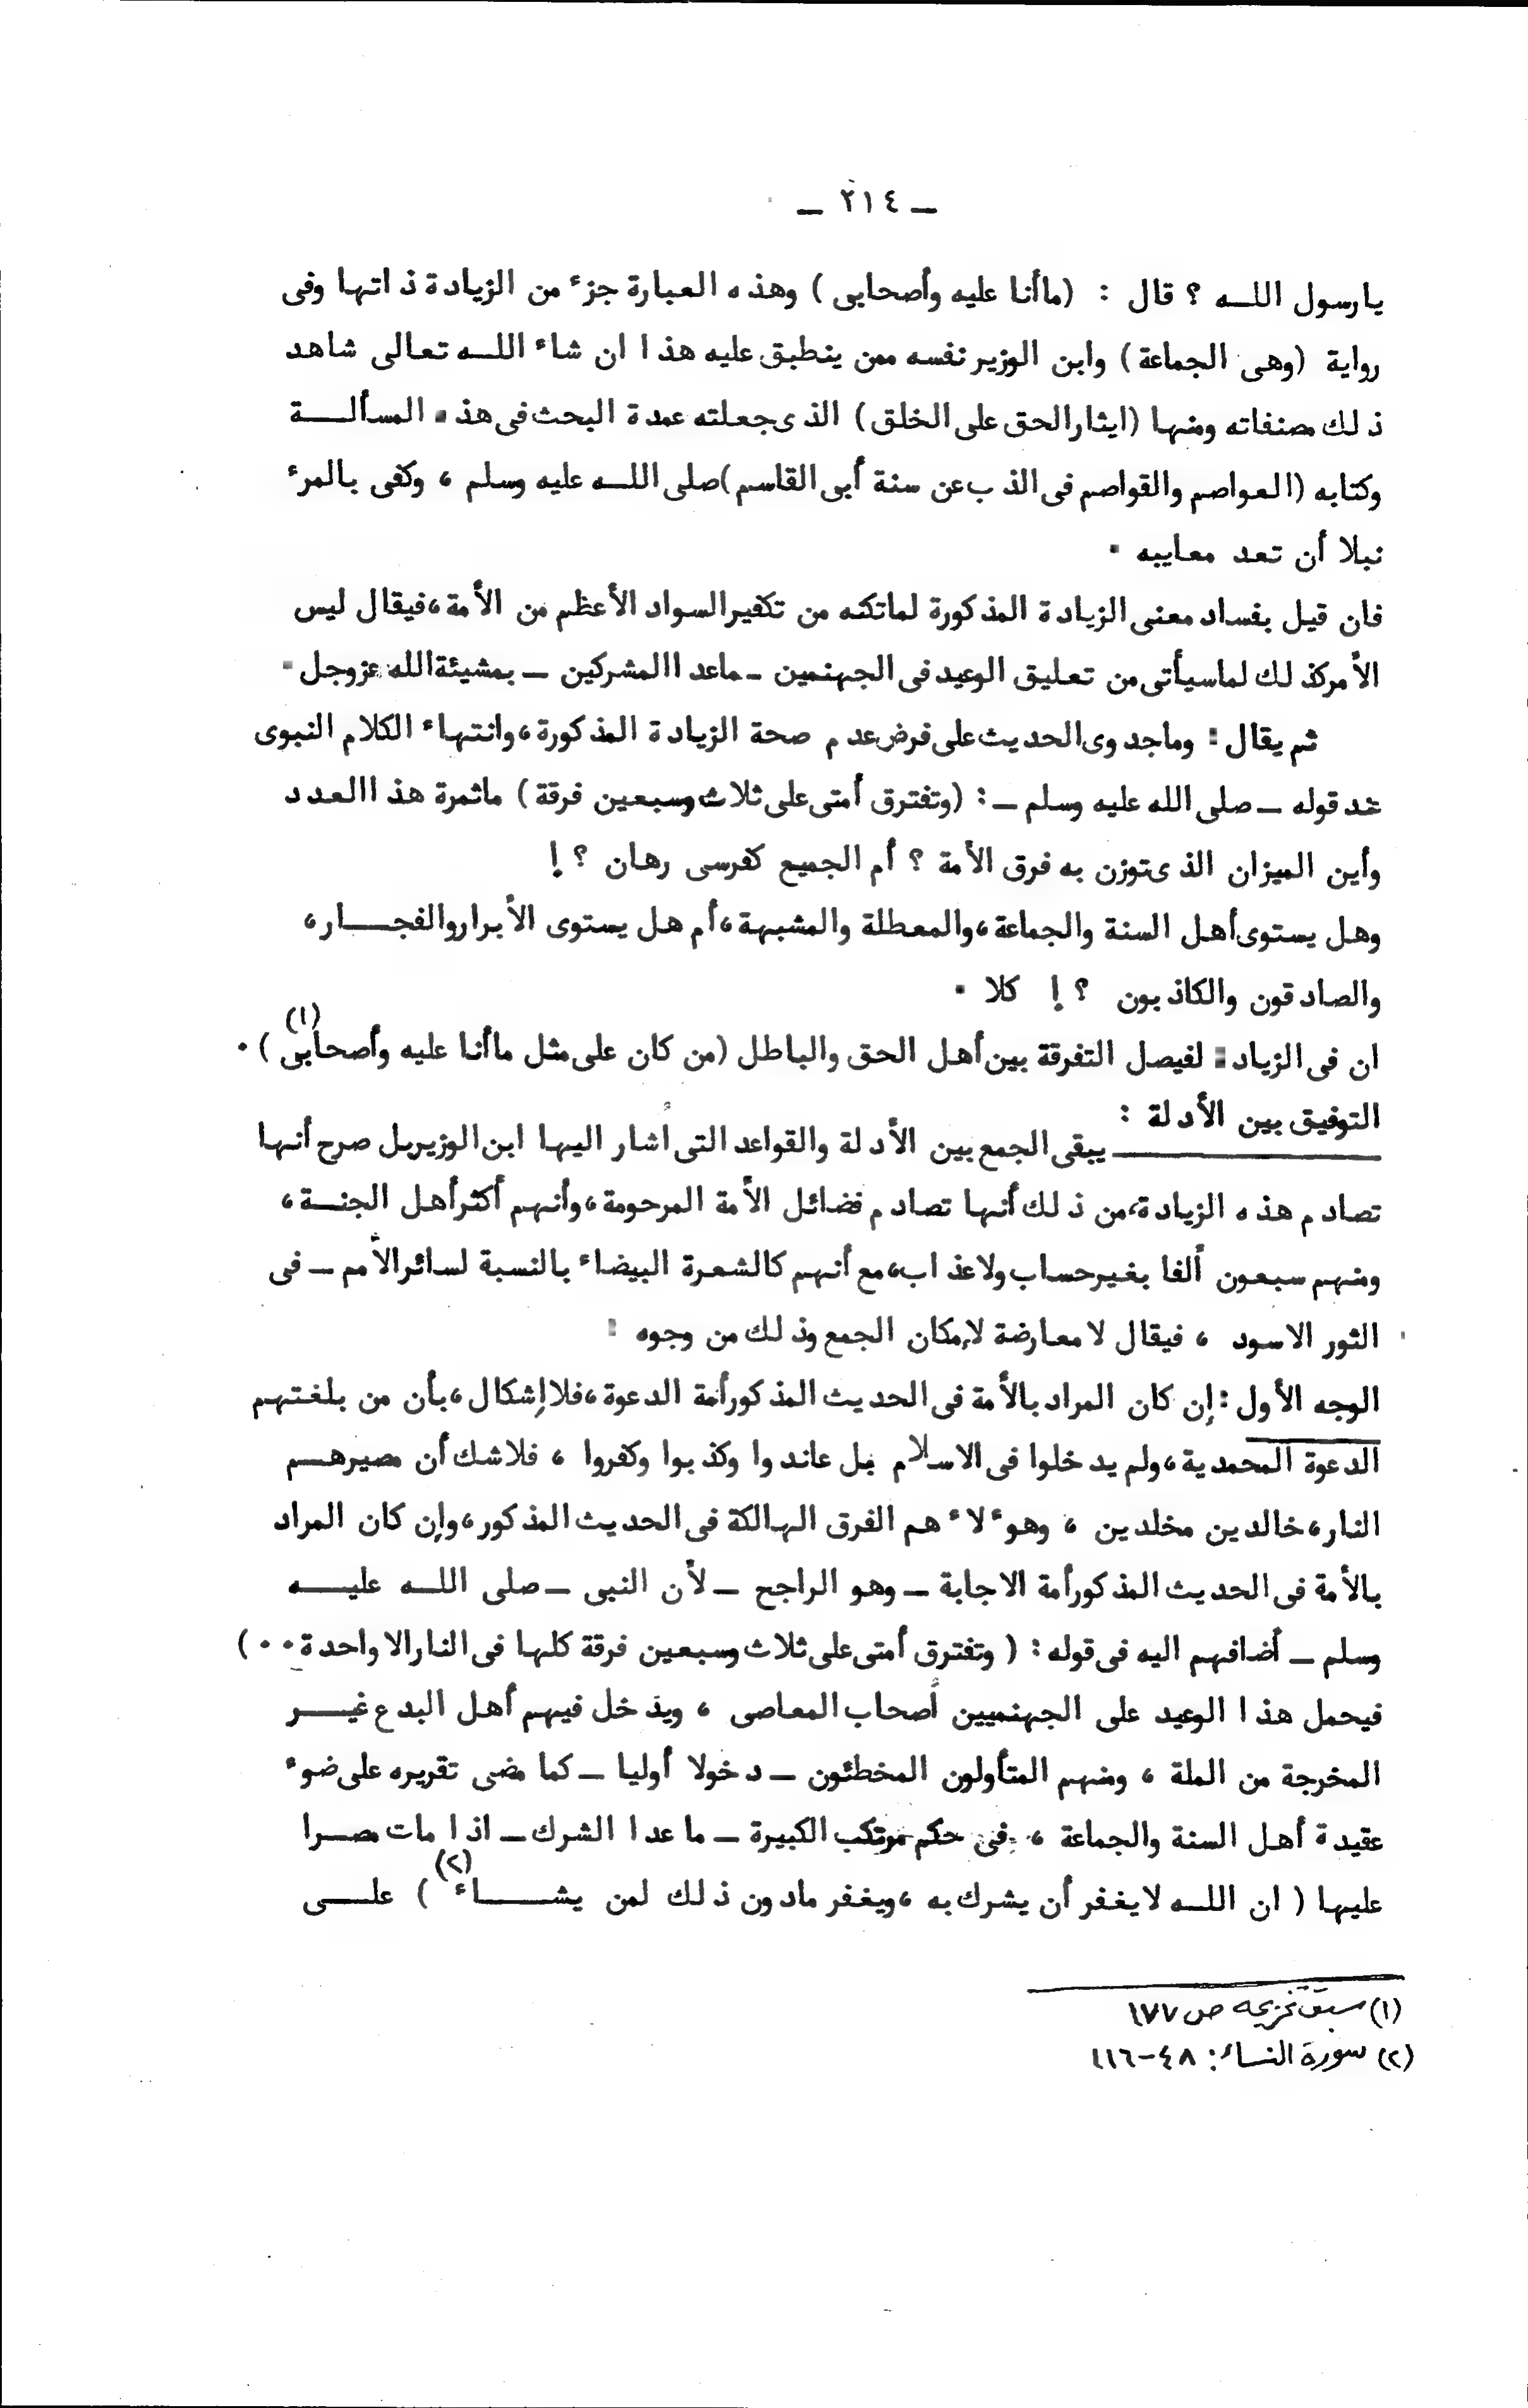 ـ ٢١٤ ـ
يارسول اللـه ؟ قال : (ماأنا عليه وأصحابى ) وهذه العبارة جزء من الزيادة ذاتها وفى
رواية (وهى الجماعة) وابن الوزير نفسه ممن ينطبق عليه هذا ان شاء اللـه تعالى شاهد
ذلك مصنفاته ومنها (ايثار الحق على الخلق) الذى جعلته عمدة البحث فى هذه المسألـــة
وكتابه (العواصم والقواصم فى الذب عن سنة أبى القاسم) صلى اللـه عليه وسلم ، وكفى بالمرء
نبلا أن تعد معايبه .
فان قيل بفساد معنى الزيادة المذكورة لماتكنه من تكفير السواد الأعظم من الأمة ،فيقال ليس
الأمر كذلك لماسيأتى من تعليق الوعيد فى الجهنمين ـ ماعدا المشركين ـ بمشيئة الله عزوجل .
ثم يقال : وماجدوى الحديث على فرض عدم صحة الزيادة المذكورة ،وانتهاء الكلام النبوى
عند قوله ـ صلى الله عليه وسلم ـ : (وتفترق أمتى على ثلاث وسبعين فرقة) ماثمرة هذا العدد
وأين الميزان الذى توزن به فرق الأمة ؟ أم الجميع كفرسى رهان ؟!
وهل يستوى أهل السنة والجماعة ،والمعطلة والمشبهة ،أم هل يستوى الأبرار والفجـــار ،
والصادقون والكاذبون ؟! كلا .
ان فى الزيادة لفيصل التفرقة بين أهل الحق والباطل (من كان على مثل ماأنا عليه وأصحابى )(١) .
التوفيق بين الأدلة :
يبقى الجمع بين الأدلة والقواعد التى أشار اليها ابن الوزير بل صرح أنها
تصادم هذه الزيادة ،من ذلك أنها تصادم فضائل الأمة المرحومة ،وأنهم أكثر أهل الجنـة ،
ومنهم سبعون ألفا بغير حساب ولاعذاب ،مع أنهم كالشعرة البيضاء بالنسبة لسائر الأمم ـ فى
الثور الاسود ، فيقال لا معارضة لإمكان الجمع وذلك من وجوه :
الوجه الأول : إن كان المراد بالأمة فى الحديث المذكور أمة الدعوة ،فلا إشكال ،بأن من بلغتهم
الدعوة المحمدية ،ولم يدخلوا فى الاسلام بل عاندوا وكذبوا وكفروا ، فلاشك أن مصيرهـم
النار ،خالدين مخلدين ، وهوءلاء هم الفرق الهالكة فى الحديث المذكور ،وإن كان المراد
بالأمة فى الحديث المذكور أمة الاجابة ـ وهو الراجح ـ لأن النبى ـ صلى اللـه عليـــه
وسلم ـ أضافهم اليه فى قوله : ( وتفترق أمتى على ثلاث وسبعين فرقة كلها فى النار الا واحدة ٠٠ )
فيحمل هذا الوعيد على الجهنميين أصحاب المعاصى ، ويدخل فيهم أهل البدع غيـــر
المخرجة من الملة ، ومنهم المتأولون المخطئون ـ دخولا أوليا ـ كما مضى تقريره على ضوء
عقيدة أهل السنة والجماعة ، فى حكم مرتكب الكبيرة ـ ما عدا الشرك ـ اذا مات مصـرا
عليها ( ان اللـه لايغفر أن يشرك به ،ويغفر مادون ذلك لمن يشـــاء )(٢) علــى
(١) سبق تخريجه ص ١٧٧
(٢) سورة النساء : ٤٨-١١٦